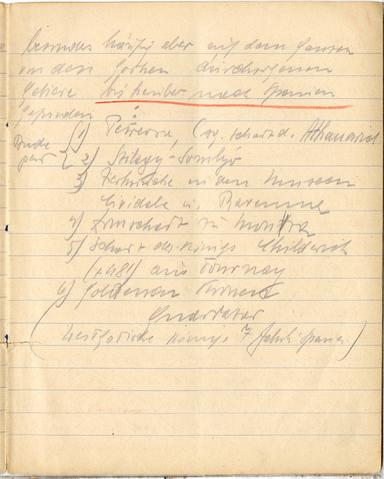 besonders häufig aber auf dem ganzen
von den Gothen durchzogenen
Gebiete bis herüber nach Spanien
gefunden:
1) Petrossa, Schatz d. Athanarich
2) Szilágy-Somlyó
3) in den Museen
Cividale u. Ravenna
4) Kronschatz zu Monza
5) Schatz des Königs Childerich
(†481) aus Tournay
6) Goldenen Kronen
Guarrazar
(westgotische Könige 7. Jahrh. Spanien)